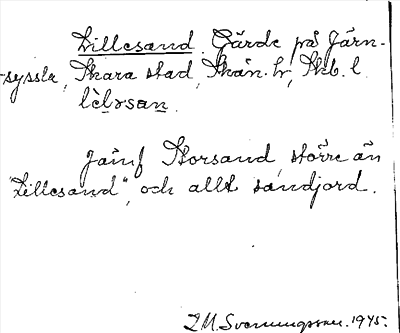 Lillesand. Gärde på Järn-
syssla, Skara stad, Skån. hr, Skb. l.
lèl̠ɔsan̠.
Jämf Storsand, större än
"Lillesand", och allt sandjord.
1945.